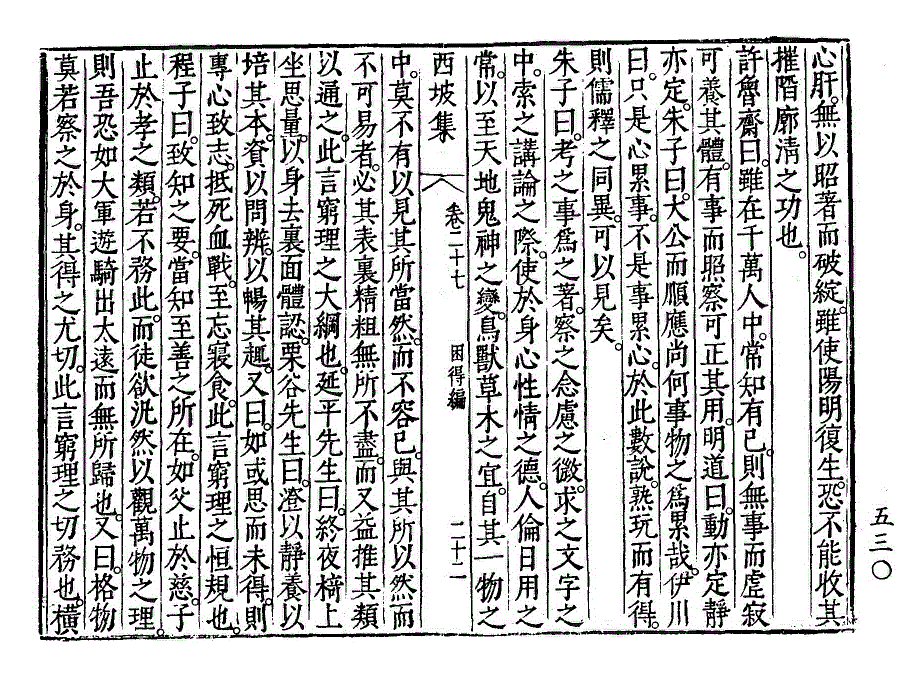 心肝。無以昭著而破綻。雖使陽明復生。恐不能收其
摧陷廓淸之功也。
許魯齋曰。雖在千萬人中。常知有己。則無事而虛寂
可養其體。有事而照察可正其用。明道曰。動亦定。靜
亦定。朱子曰。大公而順應。尙何事物之爲累哉。伊川
曰。只是心累事。不是事累心。於此數說。熟玩而有得。
則儒釋之同異。可以見矣。
朱子曰。考之事爲之著。察之念慮之微。求之文字之
中。索之講論之際。使於身心性情之德。人倫日用之
常。以至天地鬼神之變。鳥獸草木之宜。自其一物之
西坡集 卷二十七 困得編 二十二
中。莫不有以見其所當然。而不容已。與其所以然而
不可易者。必其表裏精粗無所不盡。而又益推其類
以通之。此言窮理之大綱也。延平先生曰。終夜椅上
坐思量。以身去裏面體認。栗谷先生曰。澄以靜養以
培其本。資以問辨。以暢其趣。又曰。如或思而未得。則
專心致志。抵死血戰。至忘寢食。此言窮理之恒規也。
程子曰。致知之要。當知至善之所在。如父止於慈。子
止於孝之類。若不務此。而徒欲汎然以觀萬物之理。
則吾恐如大軍遊騎出太遠而無所歸也。又曰。格物
莫若察之於身。其得之尤切。此言窮理之切務也。橫
五三〇